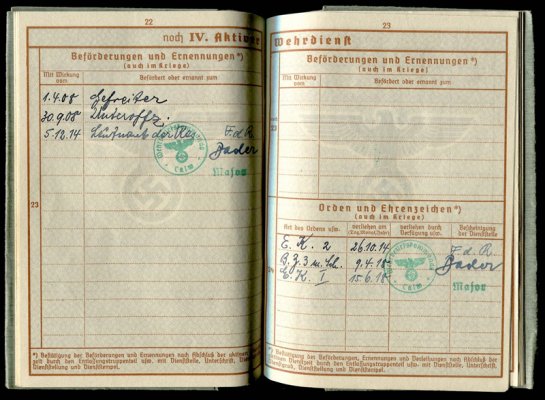 22
noch IV. Aktiver
Beförderungen und Ernennungen*)
(auch im Kriege)
Mit Wirkung vom
Befördert oder ernannt zum
1.4.08 Gefreiter
30.9.08 Unteroffz.
5.12.14 Leutnant der Res.
F. d. R.
Bader
Calw
Major
23
*) Bestätigung der Beförderungen und Ernennungen nach Abschluß der aktiven
zeit durch den Entlassungstruppenteil usw. mit Dienststelle, Unterschrift,
grad, Dienststellung und Dienststempel.
23
Wehrdienst
Beförderungen und Ernennungen*)
(auch im Kriege)
Mit Wirkung vom
Befördert oder ernannt zum
Orden und Ehrenzeichen*)
(auch im Kriege)
Art des Ordens usw.
verliehen am
(Tag, Monat, Jahr)
verliehen durch
Verfügung usw.
Bescheinigung
der Dienststelle
E. K. 2 26.10.14
9.4.18
E. K. I 15.6.18
F. d. R.
Bader
Calw
Major
*) Bestätigung der Beförderungen, Ernennungen und Verleihungen nach Abschluß der
Dienstzeit durch den Entlassungstruppenteil usw. mit Dienststelle, Unterschrift,
Dienstgrad, Dienststellung und Dienststempel.